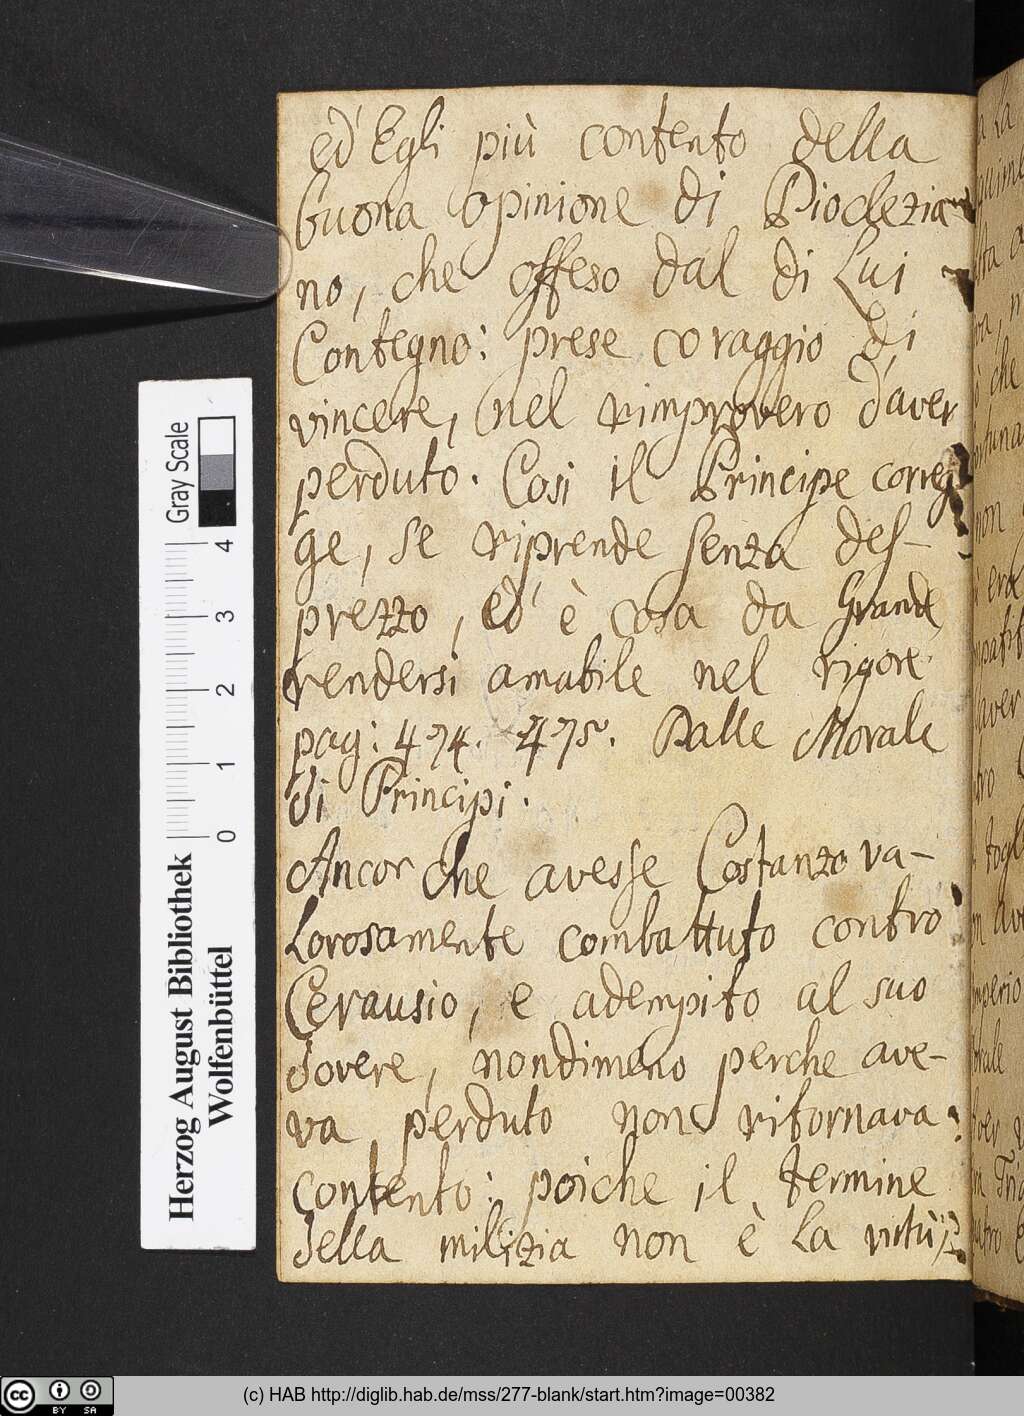 ed' Egli più contento della
buona opinione di Dioclezia-
no, che offeso dal di Lui
Contegno: prese coraggio di
vincere, nel rimprovero d'aver
perduto. Cosi il Principe correg-
ge, se riprende senza des-
prezzo, ed' è cosa da Grande
rendersi amabile nel rigore.
pag: 474. 475. Dalle Morale
di Principi.
Ancor che avesse Costanzo va-
Lorosamente combattuto contro
Cerausio, e adempito al suo
dovere, nondimeno perche ave-
va perduto non ritornava
contento: poiche il termine
della milizia non è La virtù;
Gray Scale
4
3
2
1
0
Herzog August Bibliothek
Wolfenbüttel
cc BY SA
(c) HAB http://diglib.hab.de/mss/277-blank/start.htm?image=00382